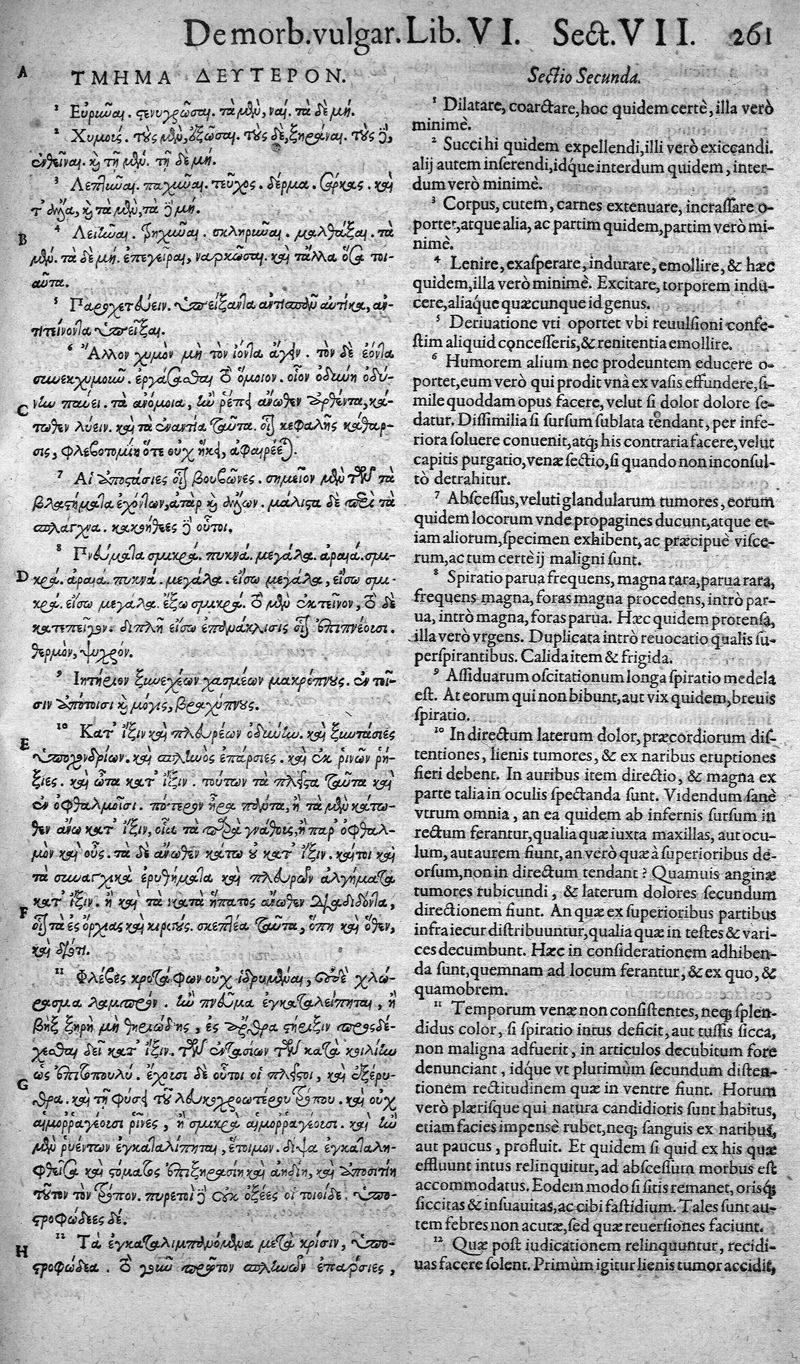 De morb. vulgar. Lib. VI. Sect. VII. 261
A
ΤΜΗΜΑ ΔΕΥΤΕΡΟΝ.
¹ Εὐρῦναι. στενυγρῶσαι. τὰ μὲν, ναί. τὰ δὲ μή.
² Χυμοὺς. τοὺς μὲν, ἐξῶσαι. τοὺς δὲ, ξηρῆναι. τοὺς δὲ,
ἐνθεῖναι. καὶ τῇ μὲν. τῇ δὲ μή.
³ Λεπτῦναι. παχῦναι. τεῦχος. δέρμα. σάρκας. καὶ
τ' ἄλλα, καὶ τὰ μὲν, τὰ δὲ μή.
B
⁴ Λειῶναι. τρηχῦναι. σκληρῦναι. μαλθάξαι. τὰ
μὲν. τὰ δὲ μή. ἐπεγεῖραι, ναρκῶσαι. καὶ τἄλλα ὅσα τοι-
αῦτα.
⁵ Παροχετεύειν. ὑπείξαντα ἀντισπᾶν αὐτίκα, ἀν-
τιτείνοντα ὑπεῖξαι.
⁶ Ἄλλον χυμὸν μὴ τὸν ἰόντα ἄγειν. τὸν δὲ ἐόντα
συνεκχυμοῦν. ἐργάσασθαι τὸ ὅμοιον. οἷον ὀδύνη ὀδύ-
C
νην παύει. τὰ ἀνόμοια, ἢν ῥέπῃ ἄνωθεν ἀρθέντα, κά-
τωθεν λύειν. καὶ τὰ ἐναντία ταῦτα. οἷον κεφαλῆς κάθαρ-
σις, φλεβοτομίη ὅτε οὐχ ἥκιστα, ἀφαιρέεται.
⁷ Αἱ ἀποστάσιες οἷον βουβῶνες. σημεῖον μὲν τῶν τὰ
βλαστήματα ἐχόντων, ἀτὰρ καὶ ἄλλων. μάλιστα δὲ περὶ τὰ
σπλάγχνα. κακοήθεες δὲ οὗτοι.
⁸ Πνεύματα σμικρὰ. πυκνά. μεγάλα. ἀραιά. σμι-
D
κρά. ἀραιά. πυκνά. μεγάλα. ἔξω μεγάλα, εἴσω σμι-
κρά. εἴσω μεγάλα ἔξω σμικρά. τὸ μὲν ἐκτεῖνον, τὸ δὲ
κατεπεῖγον. διπλῆ εἴσω ἐπανάκλισις οἷον ἐπιπνέουσι.
θερμὸν, ψυχρόν.
⁹ Ἰητήριον ξυνεχέων χασμέων μακρόπνους. ἐν τοῖ-
σιν ἀπότοισι καὶ μόγις, βραχύπνους.
E
¹⁰ Κατ' ἴξιν καὶ πλευρέων ὀδύνη. καὶ ξυντάσιες
ὑποχονδρίων. καὶ σπληνὸς ἐπάρσιες. καὶ ἐκ ῥινῶν ῥή-
ξιες. καὶ ὦτα κατ' ἴξιν. τούτων τὰ πλεῖστα ταῦτα καὶ
ἐν ὀφθαλμοῖσι. πότερον ἦρα πάντα, ἢ τὰ μὲν κάτω-
θεν ἄνω κατ' ἴξιν, οἷα τὰ παρὰ γνάθους, ἢ παρ' ὀφθαλ-
μὸν καὶ οὖς. τὰ δὲ ἄνωθεν κάτω οὐ κατ' ἴξιν. καίτοι καὶ
τὰ συναγχικὰ ἐρυθήματα καὶ πλευρῶν ἀλγήματα
F
κατ' ἴξιν. ἢ καὶ τὰ κάτω ἥπατος ἄνωθεν διαδιδόντα,
οἷον τὰ ἐς ὄρχιας καὶ κιρσούς. σκεπτέα ταῦτα, ὅπη καὶ ὅθεν,
καὶ διότι.
¹¹ Φλέβες κροτάφων οὐχ ἱδρυμέναι, οὐδὲ χλώ-
ρασμα λαμπρόν. ἢν πνεῦμα ἐγκαταλείπηται, ἢ
βὴξ ξηρὴ μὴ θηριώδης, ἐς ἄρθρα στήριξιν προσδέ-
G
χεσθαι δεῖ κατ' ἴξιν. τῶν ἐντασίων τῶν κατὰ κοιλίην
ὡς ἐπιτοπουλύ. ἔχουσι δὲ οὗτοι οἱ πλεῖστοι, καὶ ἐξέρυ-
θρα. καὶ τῇ φύσει τοῦ λευκοχροωτέρου τρόπου. καὶ οὐχ
αἱμορραγέουσι ῥῖνες, ἢ σμικρὰ αἱμορραγέουσι. καὶ ἢν
μὲν ῥυέντων ἐγκαταλίπηται, ἕτοιμον. δίψα ἐγκαταλη-
φθεῖσα καὶ στόματος ἐπιξηρασίη καὶ ἀηδίη, καὶ ἀποσιτίη
τοῦτον τὸν τρόπον. πυρετοὶ δὲ οὐκ ὀξέες οἱ τοιοίδε. ὑπο-
στροφώδεες δέ.
H
¹² Τὰ ἐγκαταλιμπανόμενα μετὰ κρίσιν, ὑπο-
στροφώδεα. τὸ γοῦν πρῶτον σπληνῶν ἐπάρσιες,
Sectio Secunda.
¹ Dilatare, coarctare, hoc quidem certè, illa verò
minimè.
² Succi hi quidem expellendi, illi verò exiccandi.
alij autem inſerendi, idque interdum quidem, inter-
dum verò minimè.
³ Corpus, cutem, carnes extenuare, incraſſare o-
portet, atque alia, ac partim quidem, partim verò mi-
nimè.
⁴ Lenire, exaſperare, indurare, emollire, & hæc
quidem, illa verò minimè. Excitare, torporem indu-
cere, aliaque quæcunque id genus.
⁵ Deriuatione vti oportet vbi reuulſioni confe-
ſtim aliquid conceſſeris, & renitentia emollire.
⁶ Humorem alium nec prodeuntem educere o-
portet, eum verò qui prodit vnà ex vaſis effundere, ſi-
mile quoddam opus facere, velut ſi dolor dolore ſe-
datur. Diſſimilia ſi ſurſum ſublata tendant, per infe-
riora ſoluere conuenit, atq; his contraria facere, velut
capitis purgatio, venæ ſectio, ſi quando non inconſul-
tò detrahitur.
⁷ Abſceſſus, veluti glandularum tumores, eorum
quidem locorum vnde propagines ducunt, atque et-
iam aliorum, ſpecimen exhibent, ac præcipuè viſce-
rum, ac tum certè ij maligni ſunt.
⁸ Spiratio parua frequens, magna rara, parua rara,
frequens magna, foras magna procedens, intrò par-
ua, intrò magna, foras parua. Hæc quidem protenſa,
illa verò vrgens. Duplicata intrò reuocatio qualis ſu-
perſpirantibus. Calida item & frigida.
⁹ Aſſiduarum oſcitationum longa ſpiratio medela
eſt. At eorum qui non bibunt, aut vix quidem, breuis
ſpiratio.
¹⁰ In directum laterum dolor, præcordiorum diſ-
tentiones, lienis tumores, & ex naribus eruptiones
fieri debent. In auribus item directio, & magna ex
parte talia in oculis ſpectanda ſunt. Videndum ſanè
vtrum omnia, an ea quidem ab infernis ſurſum in
rectum ferantur, qualia quæ iuxta maxillas, aut ocu-
lum, aut aurem fiunt, an verò quæ à ſuperioribus de-
orſum, non in directum tendant? Quamuis anginæ
tumores rubicundi, & laterum dolores ſecundum
directionem fiunt. An quæ ex ſuperioribus partibus
infra iecur diſtribuuntur, qualia quæ in teſtes & vari-
ces decumbunt. Hæc in conſiderationem adhiben-
da ſunt, quemnam ad locum ferantur, & ex quo, &
quamobrem.
¹¹ Temporum venæ non conſiſtentes, neq; ſplen-
didus color, ſi ſpiratio intus deficit, aut tuſſis ſicca,
non maligna adfuerit, in articulos decubitum fore
denunciant, idque vt plurimùm ſecundum diſten-
tionem rectitudinem quæ in ventre fiunt. Horum
verò plæriſque qui natura candidioris ſunt habitus,
etiam facies impensè rubet, neq; ſanguis ex naribus,
aut paucus, profluit. Et quidem ſi quid ex his quæ
effluunt intus relinquitur, ad abſceſſum morbus eſt
accommodatus. Eodem modo ſi ſitis remanet, oriſq;
ſiccitas & inſuauitas, ac cibi faſtidium. Tales ſunt au-
tem febres non acutæ, ſed quæ reuerſiones faciunt.
¹² Quæ poſt iudicationem relinquuntur, recidi-
uas facere ſolent. Primùm igitur lienis tumor accidit,